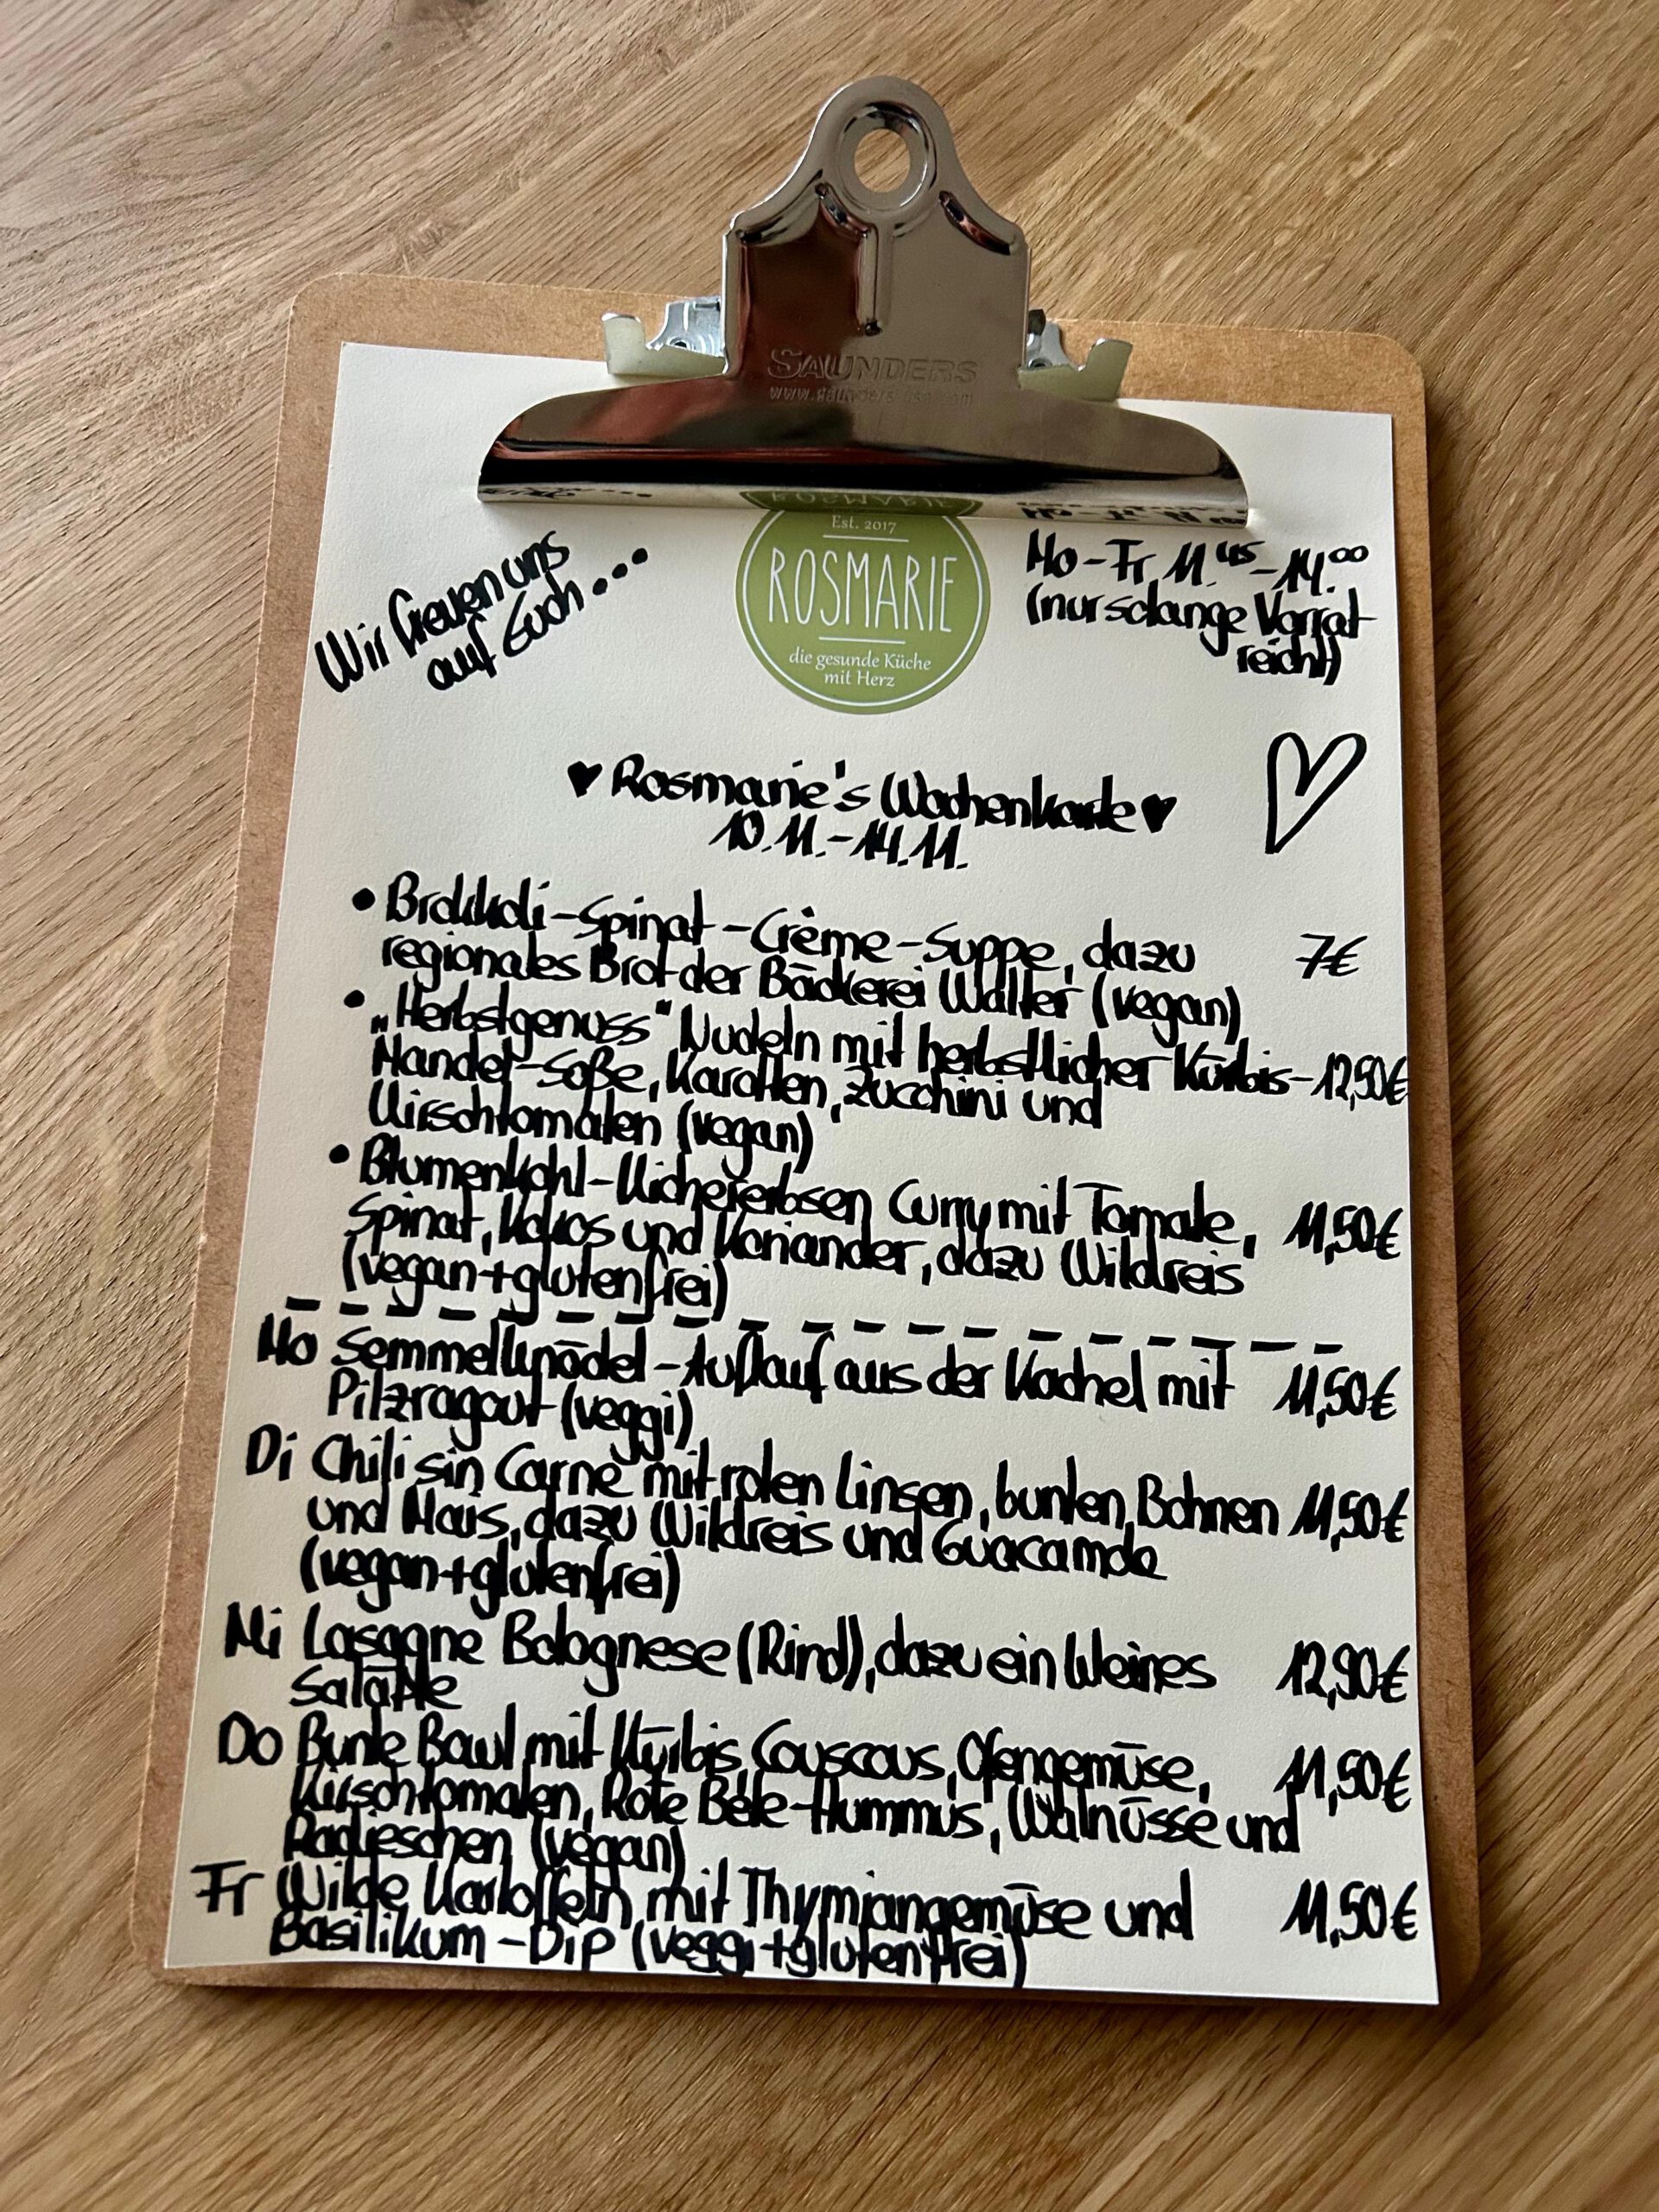 SAUNDERS
Wir freuen uns
auf Euch...
Est. 2017
ROSMARIE
die gesunde Küche
mit Herz
Mo-Fr 11.45-14.00
(nur solange Vorrat
reicht)
♥ Rosmarie's Wochenkarte ♥
10.11.-14.11.
• Brokkoli-Spinat-Crème-Suppe, dazu 7€
regionales Brot der Bäckerei Walter (vegan)
• „Herbstgenuss" Nudeln mit herbstlicher Kürbis- 12,50€
Mandel-Soße, Karotten, Zucchini und
Kirschtomaten (vegan)
• Blumenkohl-Kichererbsen Curry mit Tomate, 11,50€
Spinat, Kokos und Koriander, dazu Wildreis
(vegan+glutenfrei)
Mo Semmelknödel-Auflauf aus der Kachel mit 11,50€
Pilzragout (veggi)
Di Chili sin Carne mit roten Linsen, bunten Bohnen 11,50€
und Mais, dazu Wildreis und Guacamole
(vegan+glutenfrei)
Mi Lasagne Bolognese (Rind), dazu ein kleines 12,90€
Salätle
Do Bunte Bowl mit Kürbis, Couscous, Ofengemüse, 11,50€
Kirschtomaten, Rote Bete-Hummus, Walnüsse und
Radieschen (vegan)
Fr Wilde Kartoffeln mit Thymiangemüse und 11,50€
Basilikum-Dip (veggi+glutenfrei)